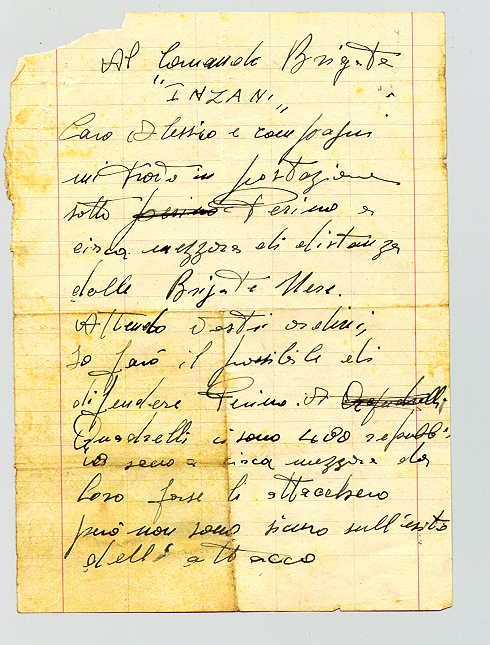 Al Comando Brigata
"INZANI"
Caro Alessio e compagni
mi trovo in postazione
sotto Perino a
circa mezzora di distanza
dalla Brigata
Attendo vostri ordini,
Io farò il possibile di
difendere Perino. A
Quadrelli ci sono 400
io sono a circa mezzora da
loro forse li attacchero
però non sono sicuro sull'esito
dell' attacco